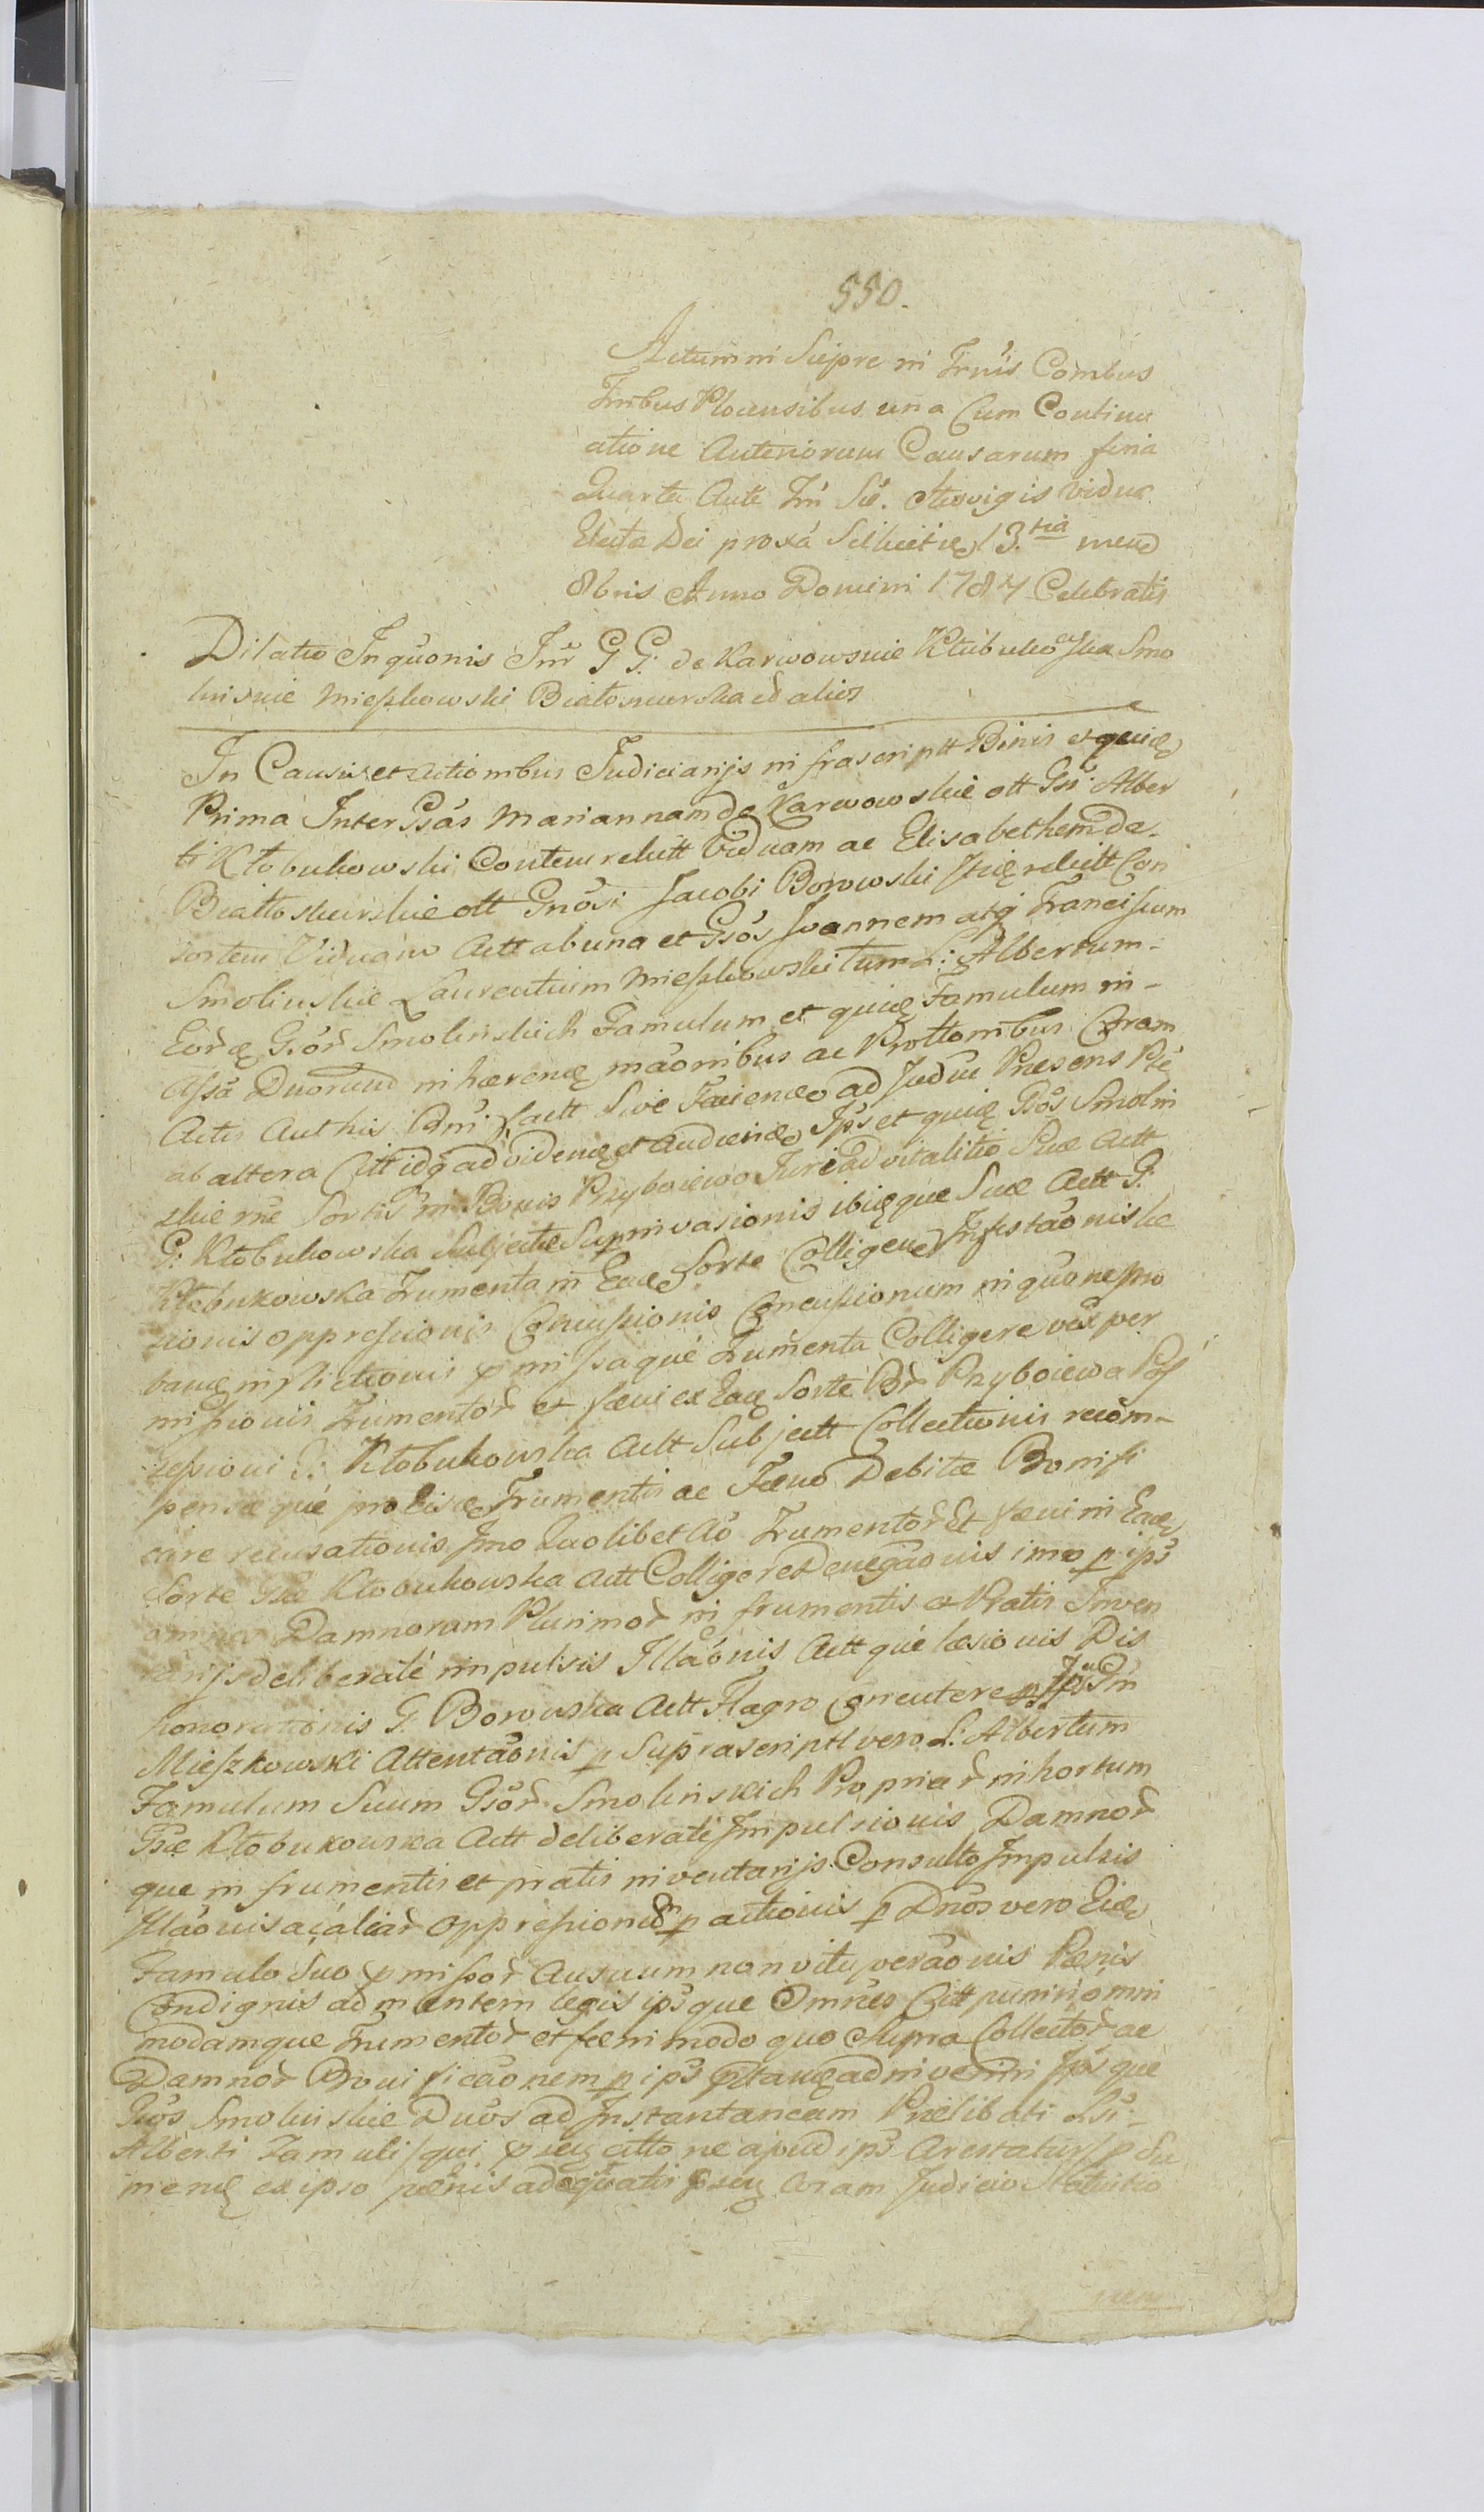 550.
Actum in Siepre in Trnis Combus
Tribus Plocensibus una Cum Continu
atione Anteriorum Causarum feria
Quarta Ante Fm Sw. Hedvigis Viduæ
Electa Dei proxa Scilicet 13.tia mens
8bris Anno Domini 1784 Celebratis
Dilatio Inquonis Jnr GG: de Karwowskie Kłubuko Ska Smo
linskie Mieszkowski Białoskurska et alios
In Causis et Actionibus Judiciarijs infrascriptt Binis et quidē
Prima Inter Gsas Mariannam de Karwowskie ott Gsi Alber
ti Kłobukowski Contem relictt Viduam ac Elisabetham de
Białłoskurskie ott Gnosi Jacobi Borowski Itid relictt Con
sortem Viduam Actt ab una et Gsos Joannem atq Franciscum
Smolinskie Laurentium Mieszkowski tum L: Albertum
Eord Gsor Smolinskich Famulum et quidē Famulum in
Assa Duorum inhærend maonibus ac Prottombus Coram
Actis Authis Factt Sive Faciend ad Judiu Præsens Pte
ab altera Citt idq ad videnē et Audiend Ipsos et quidē Gsos Smolin
skie me Sortis in Bonis Przyboiewo Juri Advitalitio Suæ Actt
G: Kłobukowska Subjectæ Supinvasionis ibiq que Suæ Actt G:
Kłobukowska Frumenta in Ead Sorte Colligend Infestaonis Læ
sionis oppressionis Concussionis Concussionum in quonesmo
band inflictionis pmissaque Frumenta Colligere vos per
missionis Frumentor et fæni ex Ead Sorte Br Przyboiewa Pos
sessioni G: Kłobukowska Actt Subjectt Collectionis recom
pensæque pro Eisd Frumentis ac Fæno Debitæ Bonifi
care recusationis Imo Quolibet Ao Frumentor Et fæni in Ead
Sorte Gsæ Kłobukowska Actt Colligere Denegaonis imo p ips
Damnorum Plurimor in frumentis et Pratis Inven
tarijs deliberaté impulsis Illaonis Actt que læsionis Dis
honorationis G: Borowska Actt Flagro Concutere p Ipsu Gm
Mieszkowski Attentaonis p Suprascriptt vero L: Albertum
Famulum Suum Gsor Smolinskich Propriar in hortum
Gsæ Kłobukowska Actt deliberati Impulsionis Damnor
que in frumentis et pratis inventarijs Consulto Impulsis
Illaonis ac aliar oppressionum p actionis p Dnos vero Eid
Famulo Suo pmissor Ausuum non vituperaonis Pænis
Condignis ad mentem legis ips que Omnes Citt puniri omni
modamque Frumentor et fæni modo quo Supra Collector ac
Damnor Bonificaonem p ips pstand adinveniri Ipsos que
Gsos Smolinskie Duos ad Instantaneam Prælibati Lsi
Alberti Famuli /qui psenq citto ne apud ips Arestatur/ p Su
mend ex ipso pænis adæquatis psenq Coram Judicio Statuitio
nem